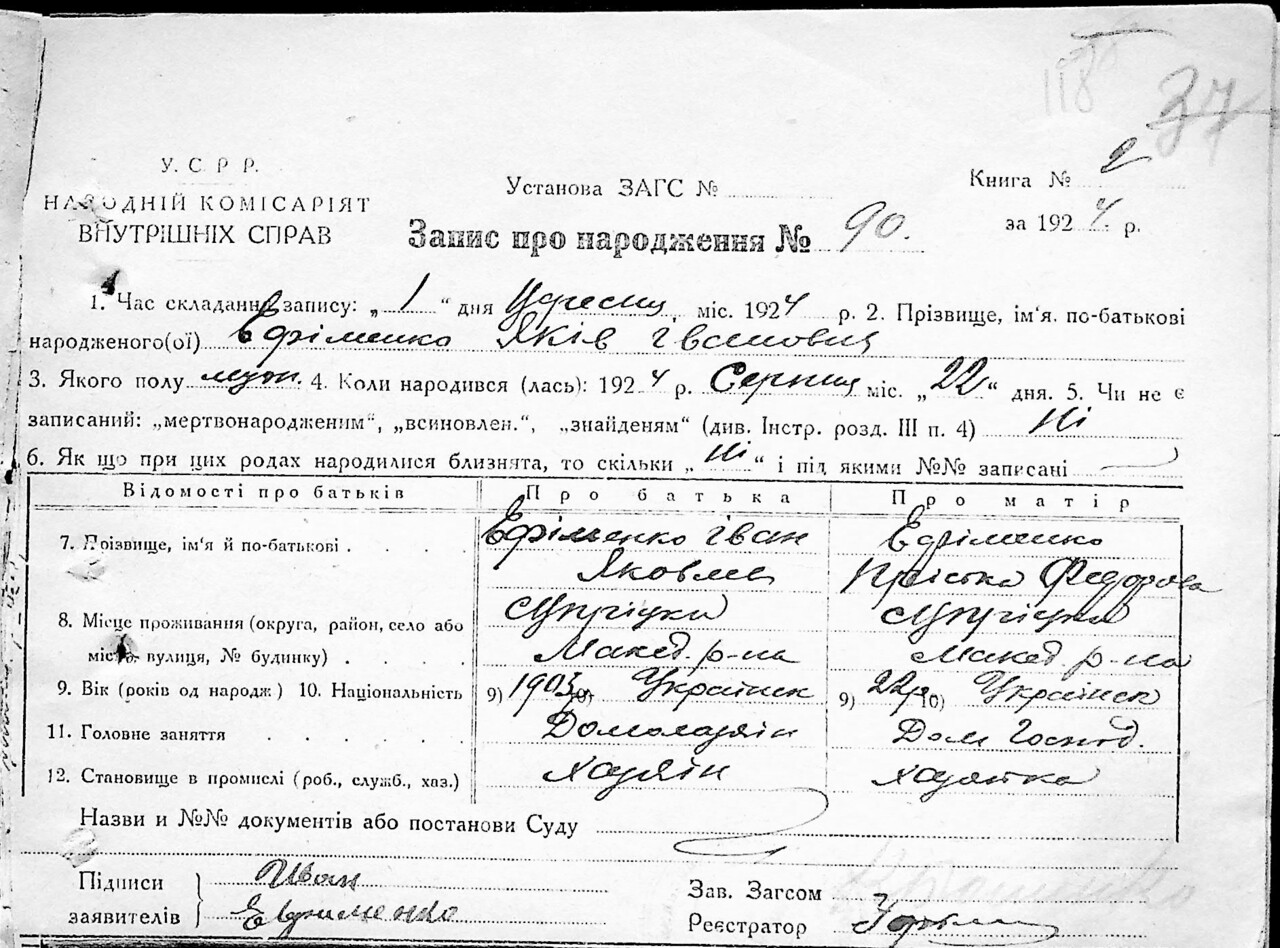 118
37
У. С Р Р.
НАРОДНІЙ КОМІСАРІЯТ
ВНУТРІШНІХ СПРАВ
Установа ЗАГС №
Книга № 2
за 1924 р.
Запис про народження № 90.
1. Час складання запису: „ 1 “ дня Вересня міс. 1924 р. 2. Прізвище, ім'я. по-батькові
народженого(ої) Ефіменко Яків Іванович
3. Якого полу муж. 4. Коли народився (лась): 1924 р. Серпня міс. „ 22 “ дня. 5. Чи не є
записаний: „мертвонародженим“, „всиновлен.“, „знайденям“ (див. Інстр. розд. III п. 4) Ні
6. Як що при цих родах народилися близнята, то скільки „ Ні “ і під якими №№ записані
Відомості про батьків Про батька Про матір
7. Прізвище, ім'я й по-батькові . . . . Ефіменко Іван Ефіменко
Яковле Федорова
8. Місце проживання (округа, район, село або
місто вулиця, № будинку) . . . . Макед. р-на Макед. р-на
9. Вік (років од народж) 10. Національність 9) 1903 10) Українск 9) 22р 10) Українск
11. Головне заняття . . . . . . Домохазяін Дом Господ.
12. Становище в промислі (роб., служб., хаз.) Хазяін хазяйка
Назви и №№ документів або постанови Суду
Підписи Иван
заявителів Евдименко
Зав. Загсом
Реєстратор